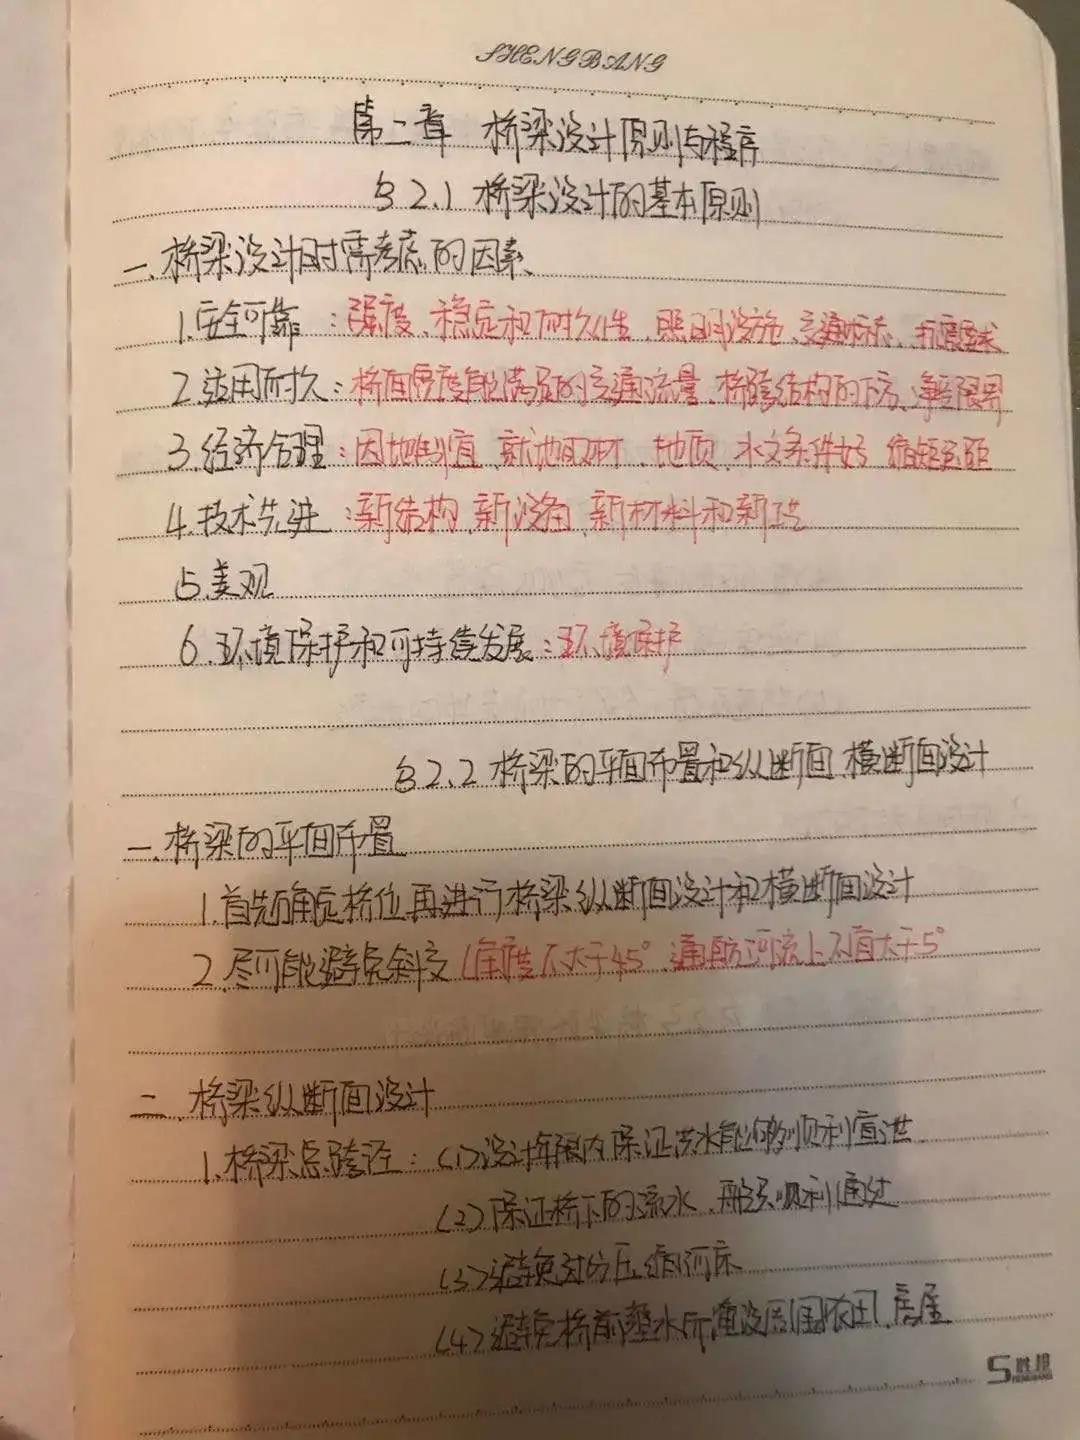 SHENGBANG
第二章 桥梁设计原则与程序
§2.1 桥梁设计的基本原则
一、桥梁设计时需考虑的因素
1.安全可靠：强度、稳定和耐久性、照明设施、交通标志、抗震要求
2.适用耐久：桥面宽度能满足的交通流量、桥跨结构的下方、净空限界
3.经济合理：因地制宜、就地取材、地质、水文条件好 缩短运距
4.技术先进：新结构、新设备、新材料和新工艺
5.美观
6.环境保护和可持续发展：环境保护
§2.2 桥梁的平面布置和纵断面、横断面设计
一、桥梁的平面布置
1.首先确定桥位再进行桥梁纵断面设计和横断面设计
2.尽可能避免斜交（角度不大于45°、通航河流上不宜大于5°
二、桥梁纵断面设计
1.桥梁总跨径：(1)设计年限内保证洪水能够顺利宣泄
(2)保证桥下的流水、船只顺利通过
(3)避免过分压缩河床
(4)避免桥前壅水所淹没周围农田、房屋
胜邦
SHENGBANG